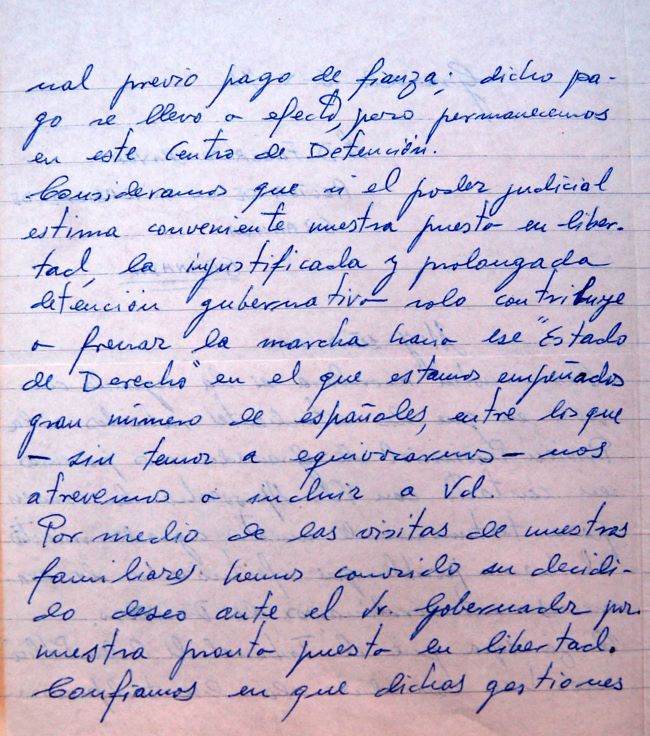 nal previo pago de fianza; dicho pa-
go se llevo a efecto, pero permanecemos
en este Centro de Detención.
Consideramos que si el poder judicial
estima conveniente nuestra puesta en liber-
tad, la injustificada y prolongada
detención gubernativa solo contribuye
a frenar la marcha hacia ese "Estado
de Derecho" en el que estamos empeñados
gran número de españoles, entre los que
- sin temor a equivocarnos - nos
atrevemos a incluir a Vd
Por medio de las visitas de nuestras
familiares hemos conocido su decidi-
do deseo ante el Sr. Gobernador por
nuestra pronta puesta en libertad.
Confiamos en que dichas gestiones